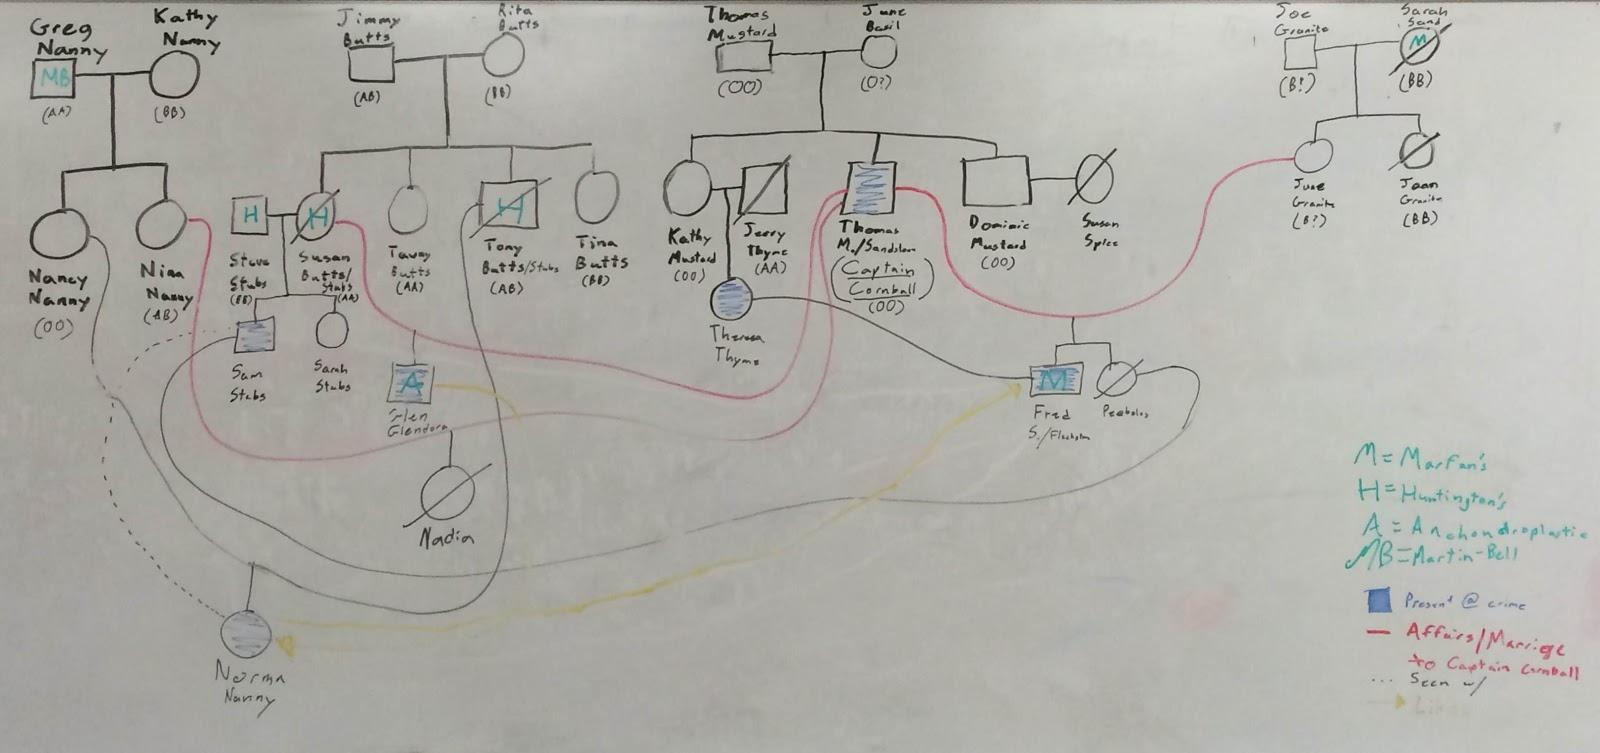 Greg
Nanny
MB
(AA)
Kathy
Nanny
(BB)
Jimmy
Butts
(AB)
Rita
Butts
(BB)
Thomas
Mustard
(OO)
June
Basil
(O?)
Joe
Granite
(B?)
Sarah
Sand
M
(BB)
Nancy
Nanny
(OO)
Nina
Nanny
(AB)
H
Steve
Stubs
(BB)
H
Susan
Butts/
Stubs
(AA)
Tawny
Butts
(AA)
H
Tony
Butts/Stubs
(AB)
Tina
Butts
(BB)
Kathy
Mustard
(OO)
Jerry
Thyme
(AA)
Thomas
M./Sandslam
(Captain
Cornball)
(OO)
Dominic
Mustard
(OO)
Susan
Spice
June
Granite
(B?)
Joan
Granite
(BB)
Sam
Stubs
Sarah
Stubs
A
Glen
Glendora
Theresa
Thyme
M
Fred
Nadia
Norma
Nanny
M = Marfan's
H = Huntington's
A = Anchondroplastic
MB = Martin-Bell
Present @ crime
Affairs/Marriage
to Captain Cornball
Seen w/